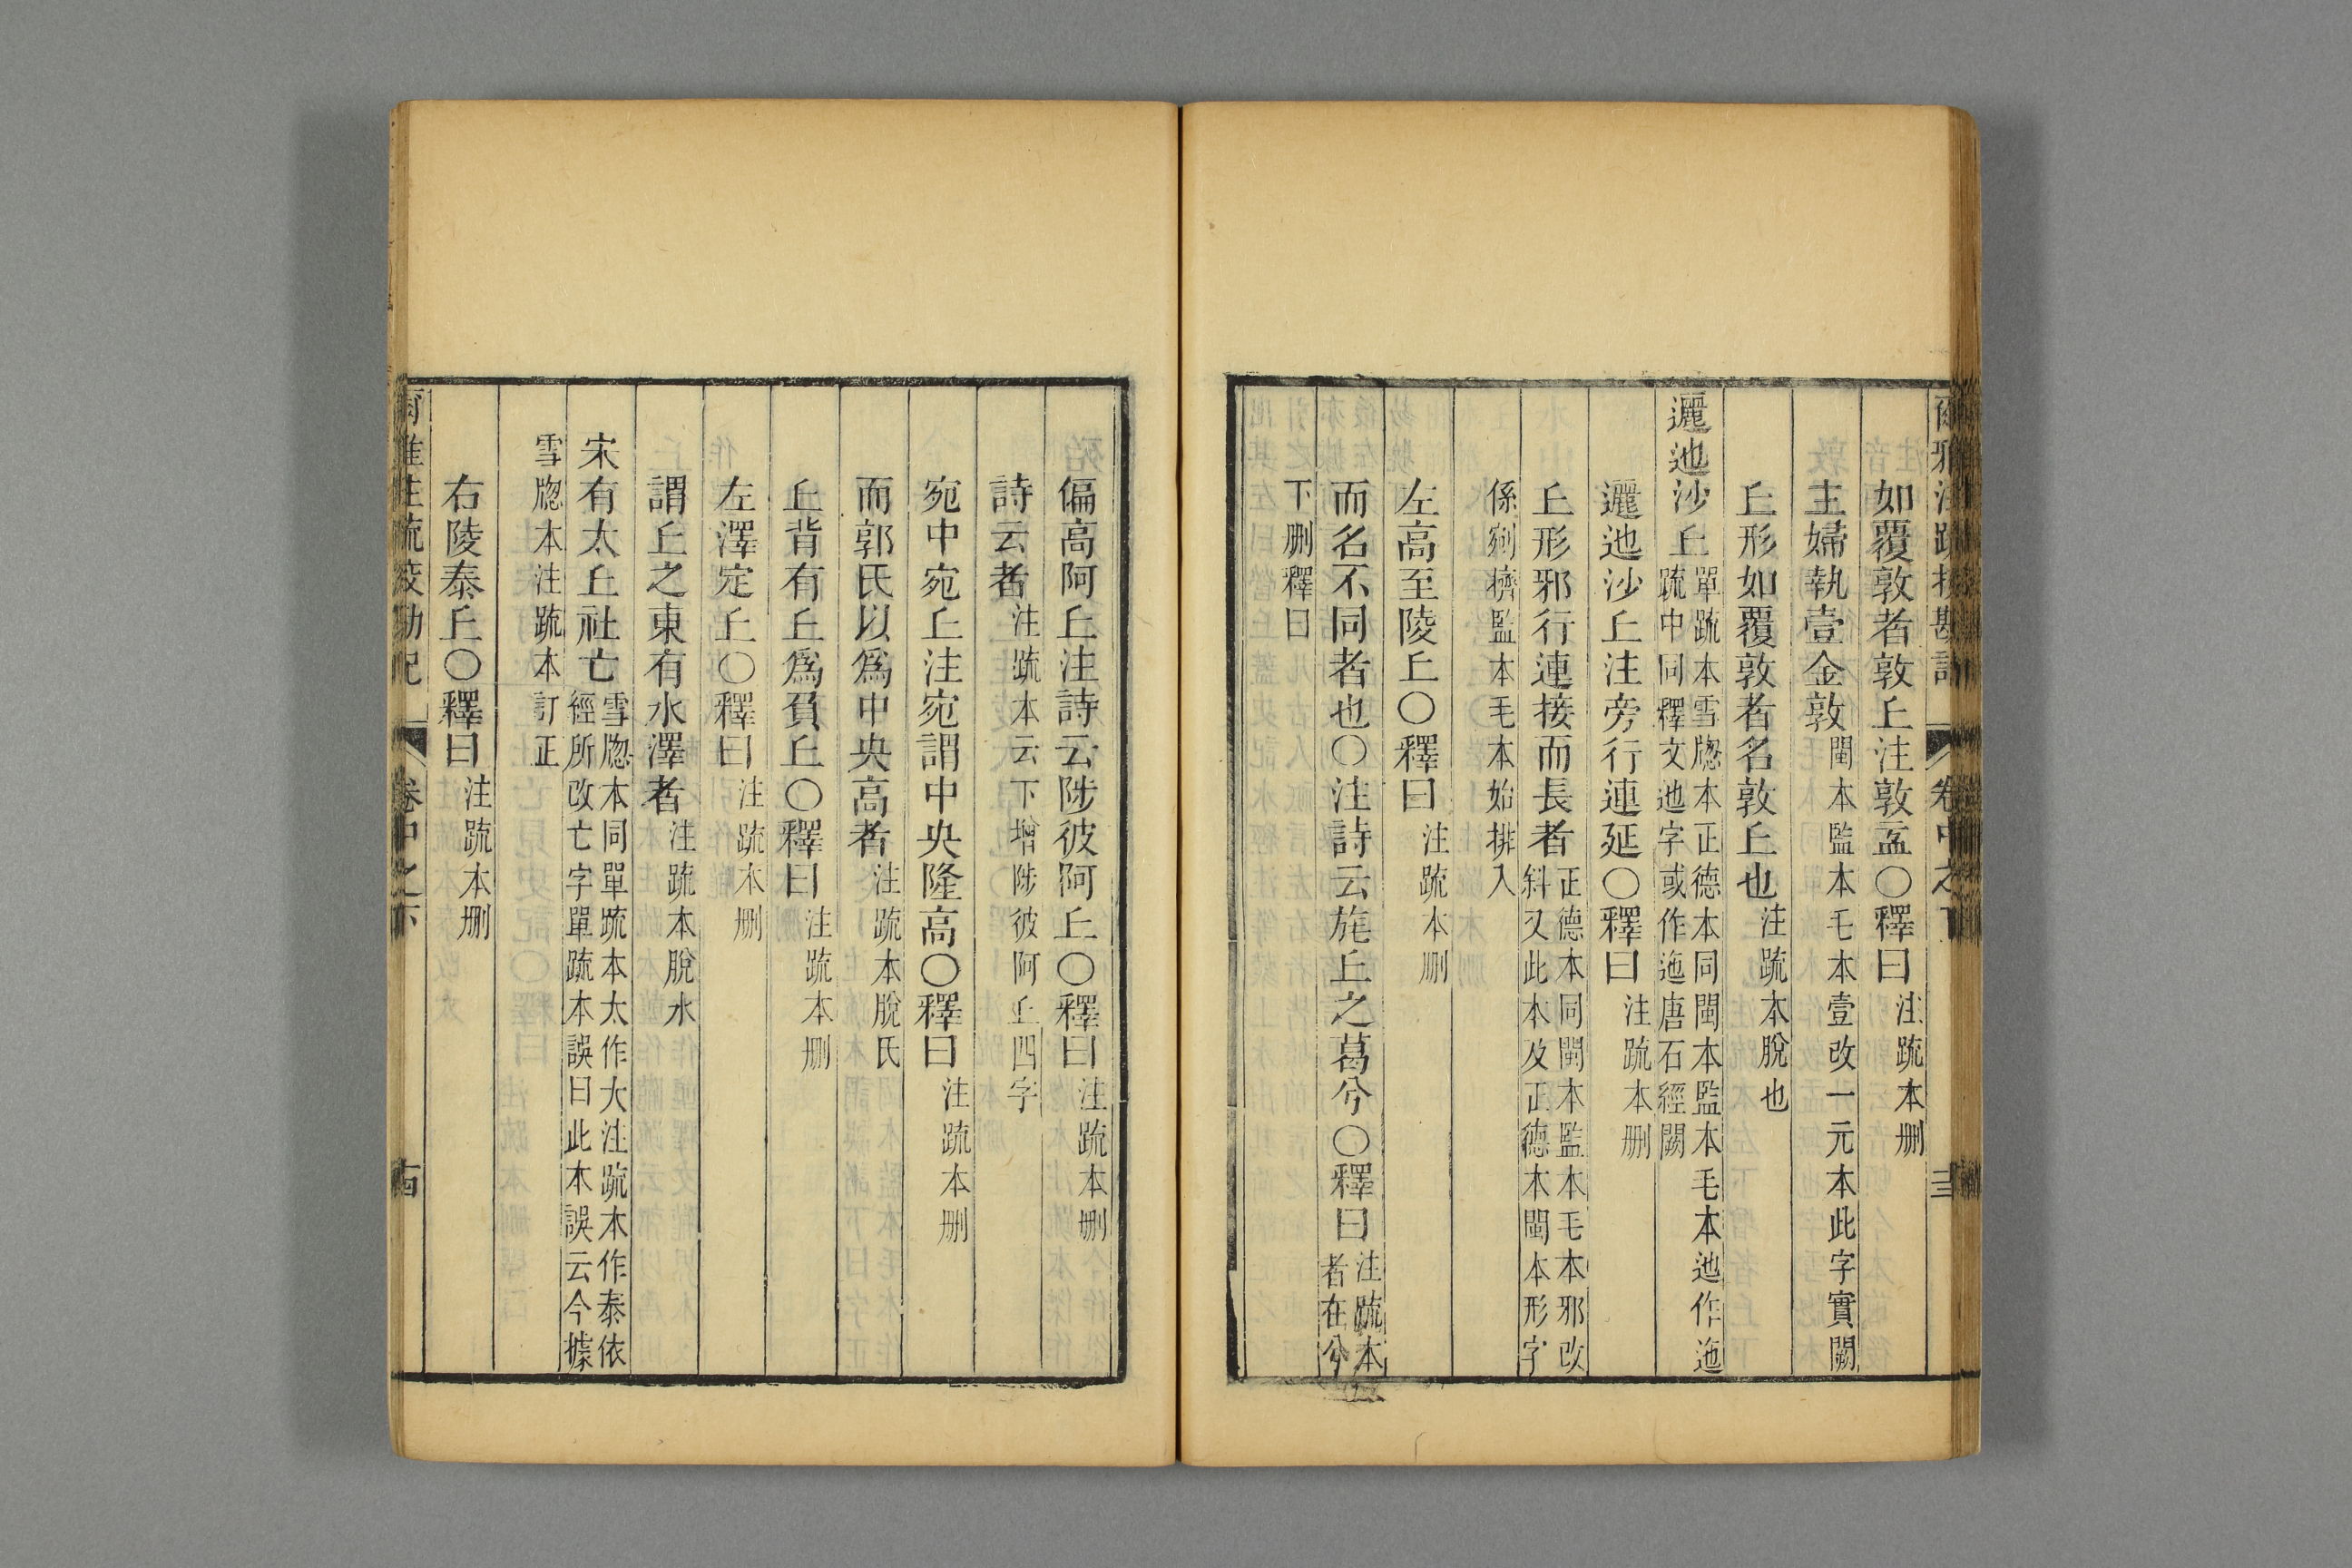 爾雅注疏挍勘記 卷中之下 三
如覆敦者敦丘注敦盂〇釋曰注疏本删
主婦執壹金敦閩本監本毛本壹改一元本此字實闕
丘形如覆敦者名敦丘也注疏本脫也
邐迆沙丘單疏本雪牎本正德本同閩本監本毛本迆作迤
疏中同釋文迆字或作迤唐石經闕
邐迆沙丘注旁行連延〇釋曰注疏本删
丘形邪行連接而長者正德本同閩本監本毛本邪改
斜又此本及正德本閩本形字
係剜擠監本毛本始排入
左高至陵丘〇釋曰注疏本删
而名不同者也〇注詩云旄丘之葛兮〇釋曰注疏本
者在兮
下删釋曰
偏高阿丘注詩云陟彼阿丘〇釋曰注疏本删
詩云者注疏本云下增陟彼阿丘四字
宛中宛丘注宛謂中央隆高〇釋曰注疏本删
而郭氏以爲中央高者注疏本脫氏
丘背有丘爲負丘〇釋曰注疏本删
左澤定丘〇釋曰注疏本删
謂丘之東有水澤者注疏本脫水
宋有太丘社亡雪牎本同單疏本太作大注疏本作泰依
經所改亡字單疏本誤曰此本誤云今據
雪牎本注疏本訂正
右陵泰丘〇釋曰注疏本删
爾雅注疏挍勘記 卷中之下 古